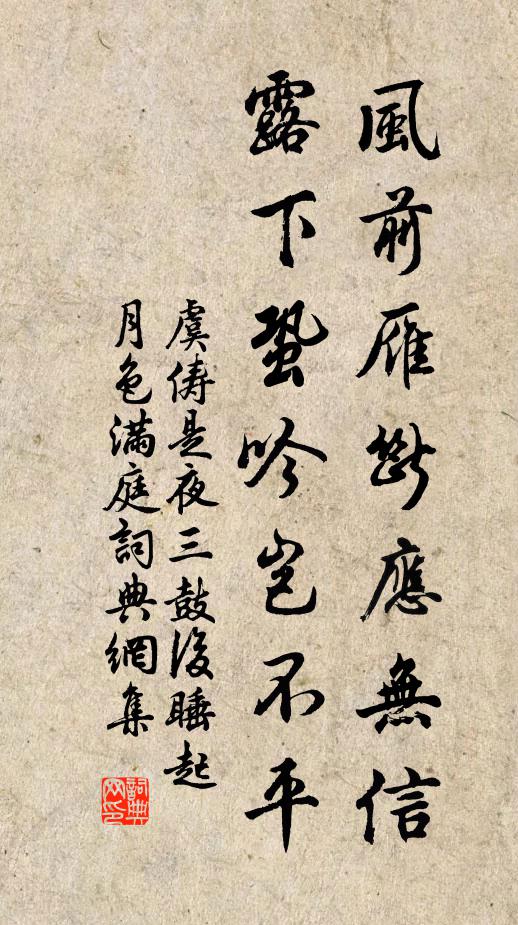 風前雁断應無信
露下蛩吟岂不平
虞儔是夜三鼓後睡起
月色滿庭詞典網集
詞典
网印